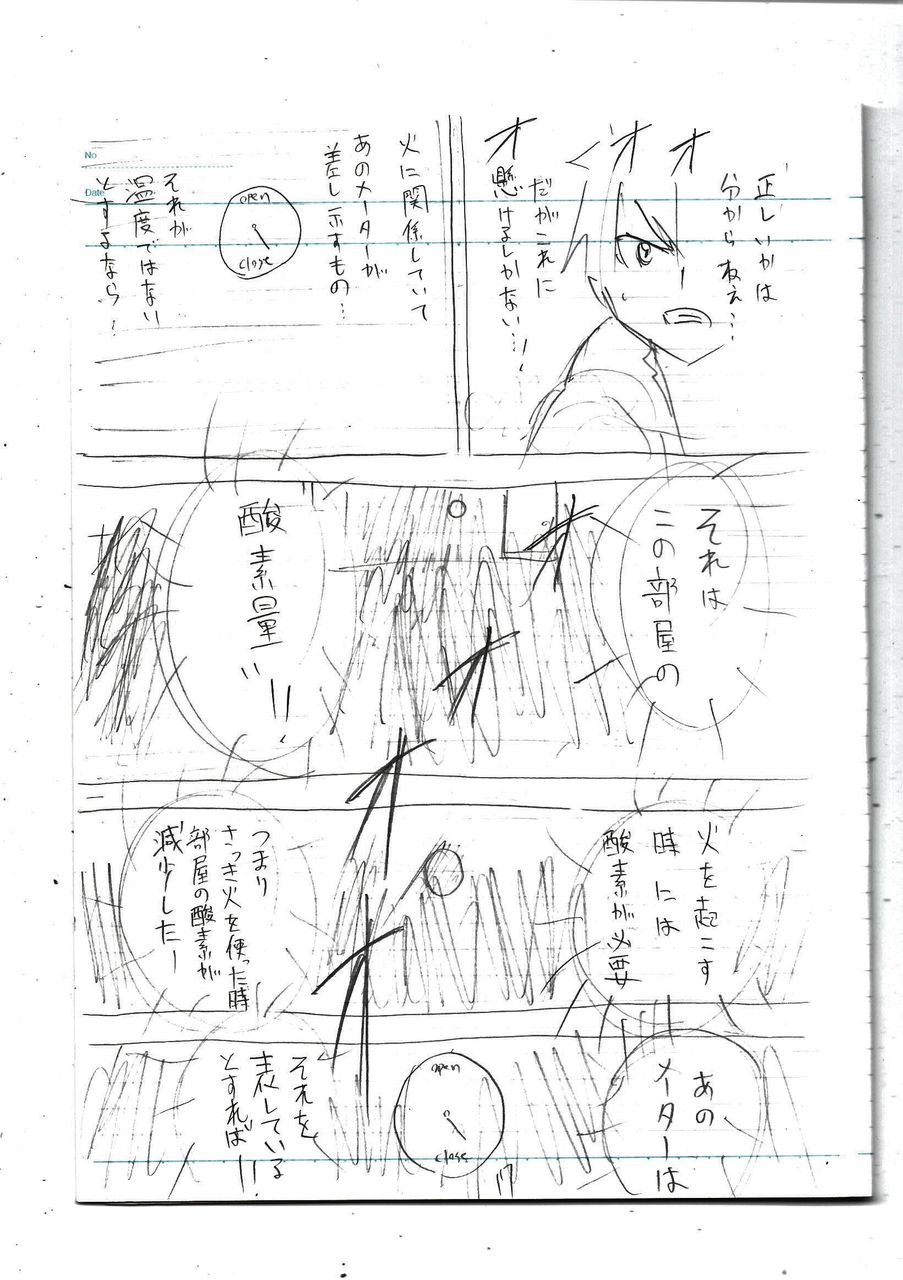 正しいかは
分からねぇ…
オ
オ
オ
だがこれに
懸けるしかない…!!
火に関係していて
あのメーターが
差し示すもの…
open
close
それが
温度ではない
とするなら!
No
Date
それは
この部屋の
オ
オ
オ
オ
酸素量"!!
火を起こす
時には
酸素が必要
つまり
さっき火を使った時
部屋の酸素が
減少したー
あの
メーターは
open
close
それを
表している
とすれば!!
17